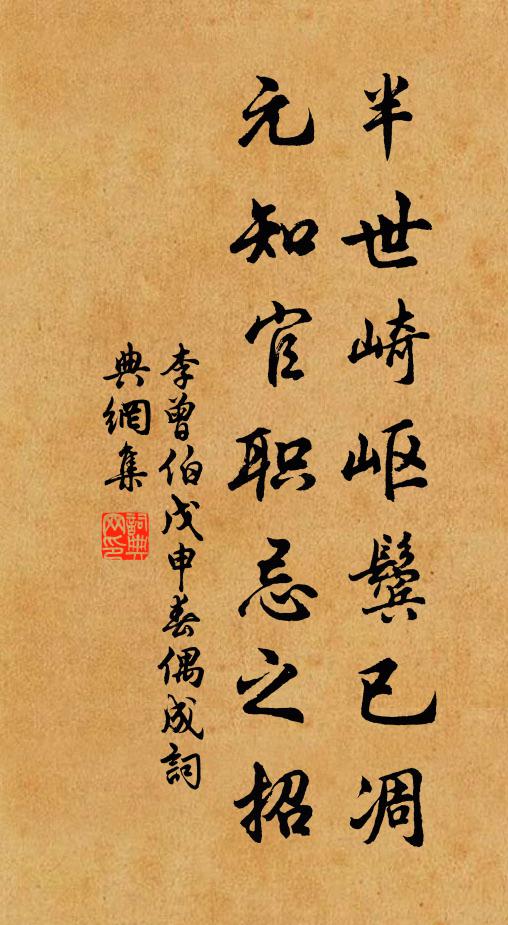 半世崎岖鬓已凋
元知官职忌之招
李曾伯戊申春偶成詞
典網集
詞典网印